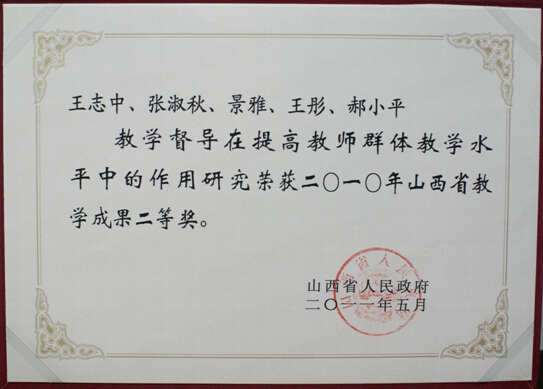 王志中、张淑秋、景雅、王彤、郝小平
教学督导在提高教师群体教学水
平中的作用研究荣获二〇一〇年山西省教
学成果二等奖。
山西省人民政府
二〇一一年五月